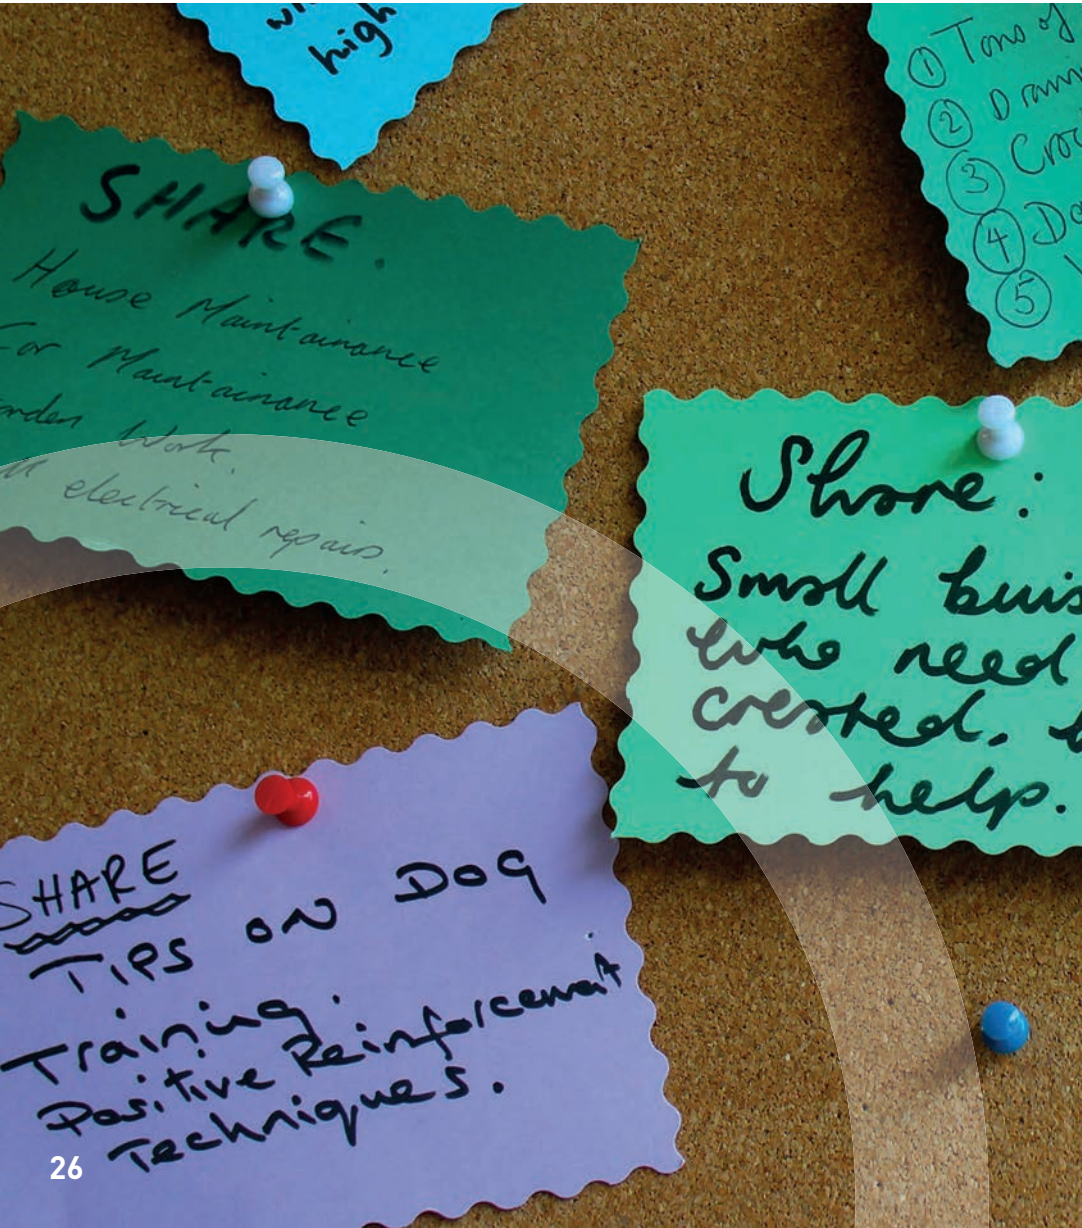 high
① Tons of
②
③
④
⑤
SHARE.
House Maintainance
Maintainance
Work.
electrical repairs.
Share:
Small
who need
created.
to help.
SHARE
TIPS ON DOG
Training.
Positive Reinforcement
Techniques.
26